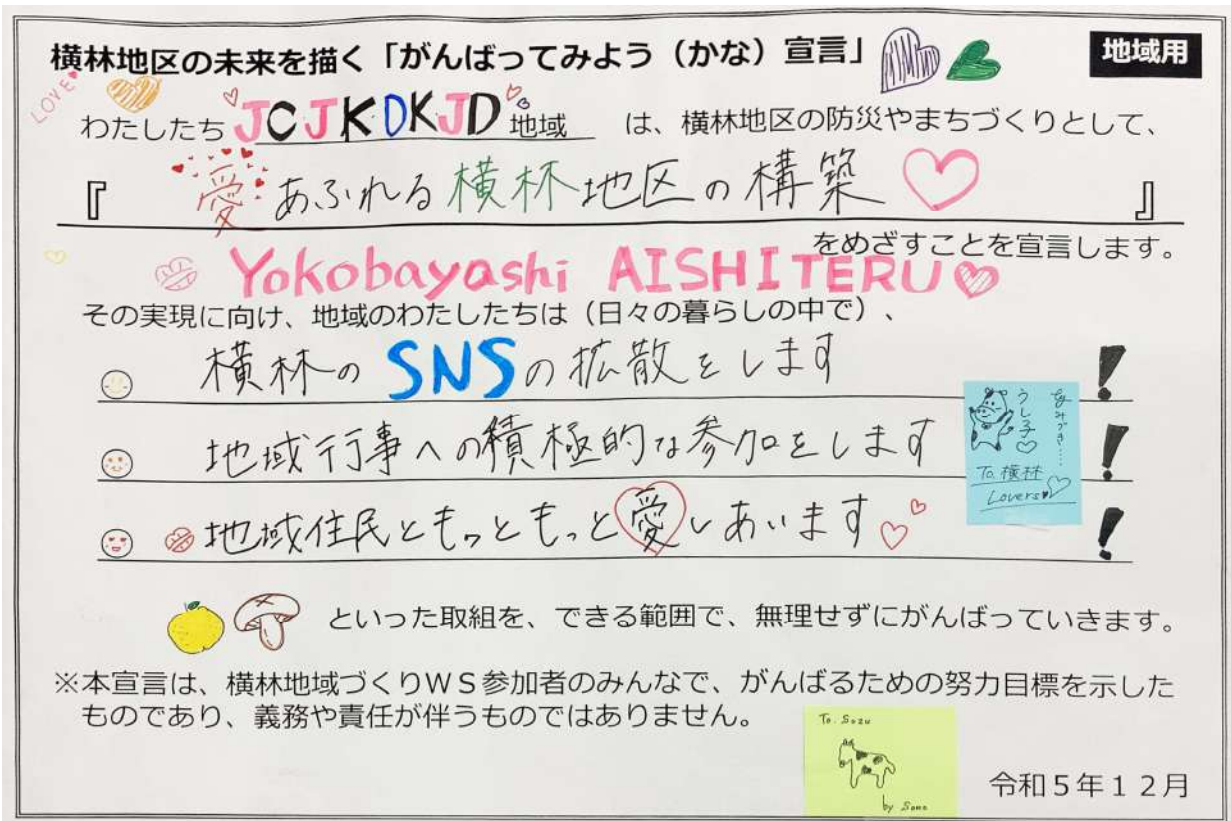 横林地区の未来を描く「がんばってみよう（かな）宣言」
地域用
LOVE
わたしたち JCJKDKJD 地域 は、横林地区の防災やまちづくりとして、
『 愛あふれる横林地区の構築 』
をめざすことを宣言します。
Yokobayashi AISHITERU
その実現に向け、地域のわたしたちは（日々の暮らしの中で）、
横林のSNSの拡散をします！
地域行事への積極的な参加をします！
地域住民ともっともっと愛しあいます！
うし子
To.横林
Lovers
といった取組を、できる範囲で、無理せずにがんばっていきます。
※本宣言は、横林地域づくりＷＳ参加者のみんなで、がんばるための努力目標を示した
ものであり、義務や責任が伴うものではありません。
To. Sozu
by Sone
令和５年１２月